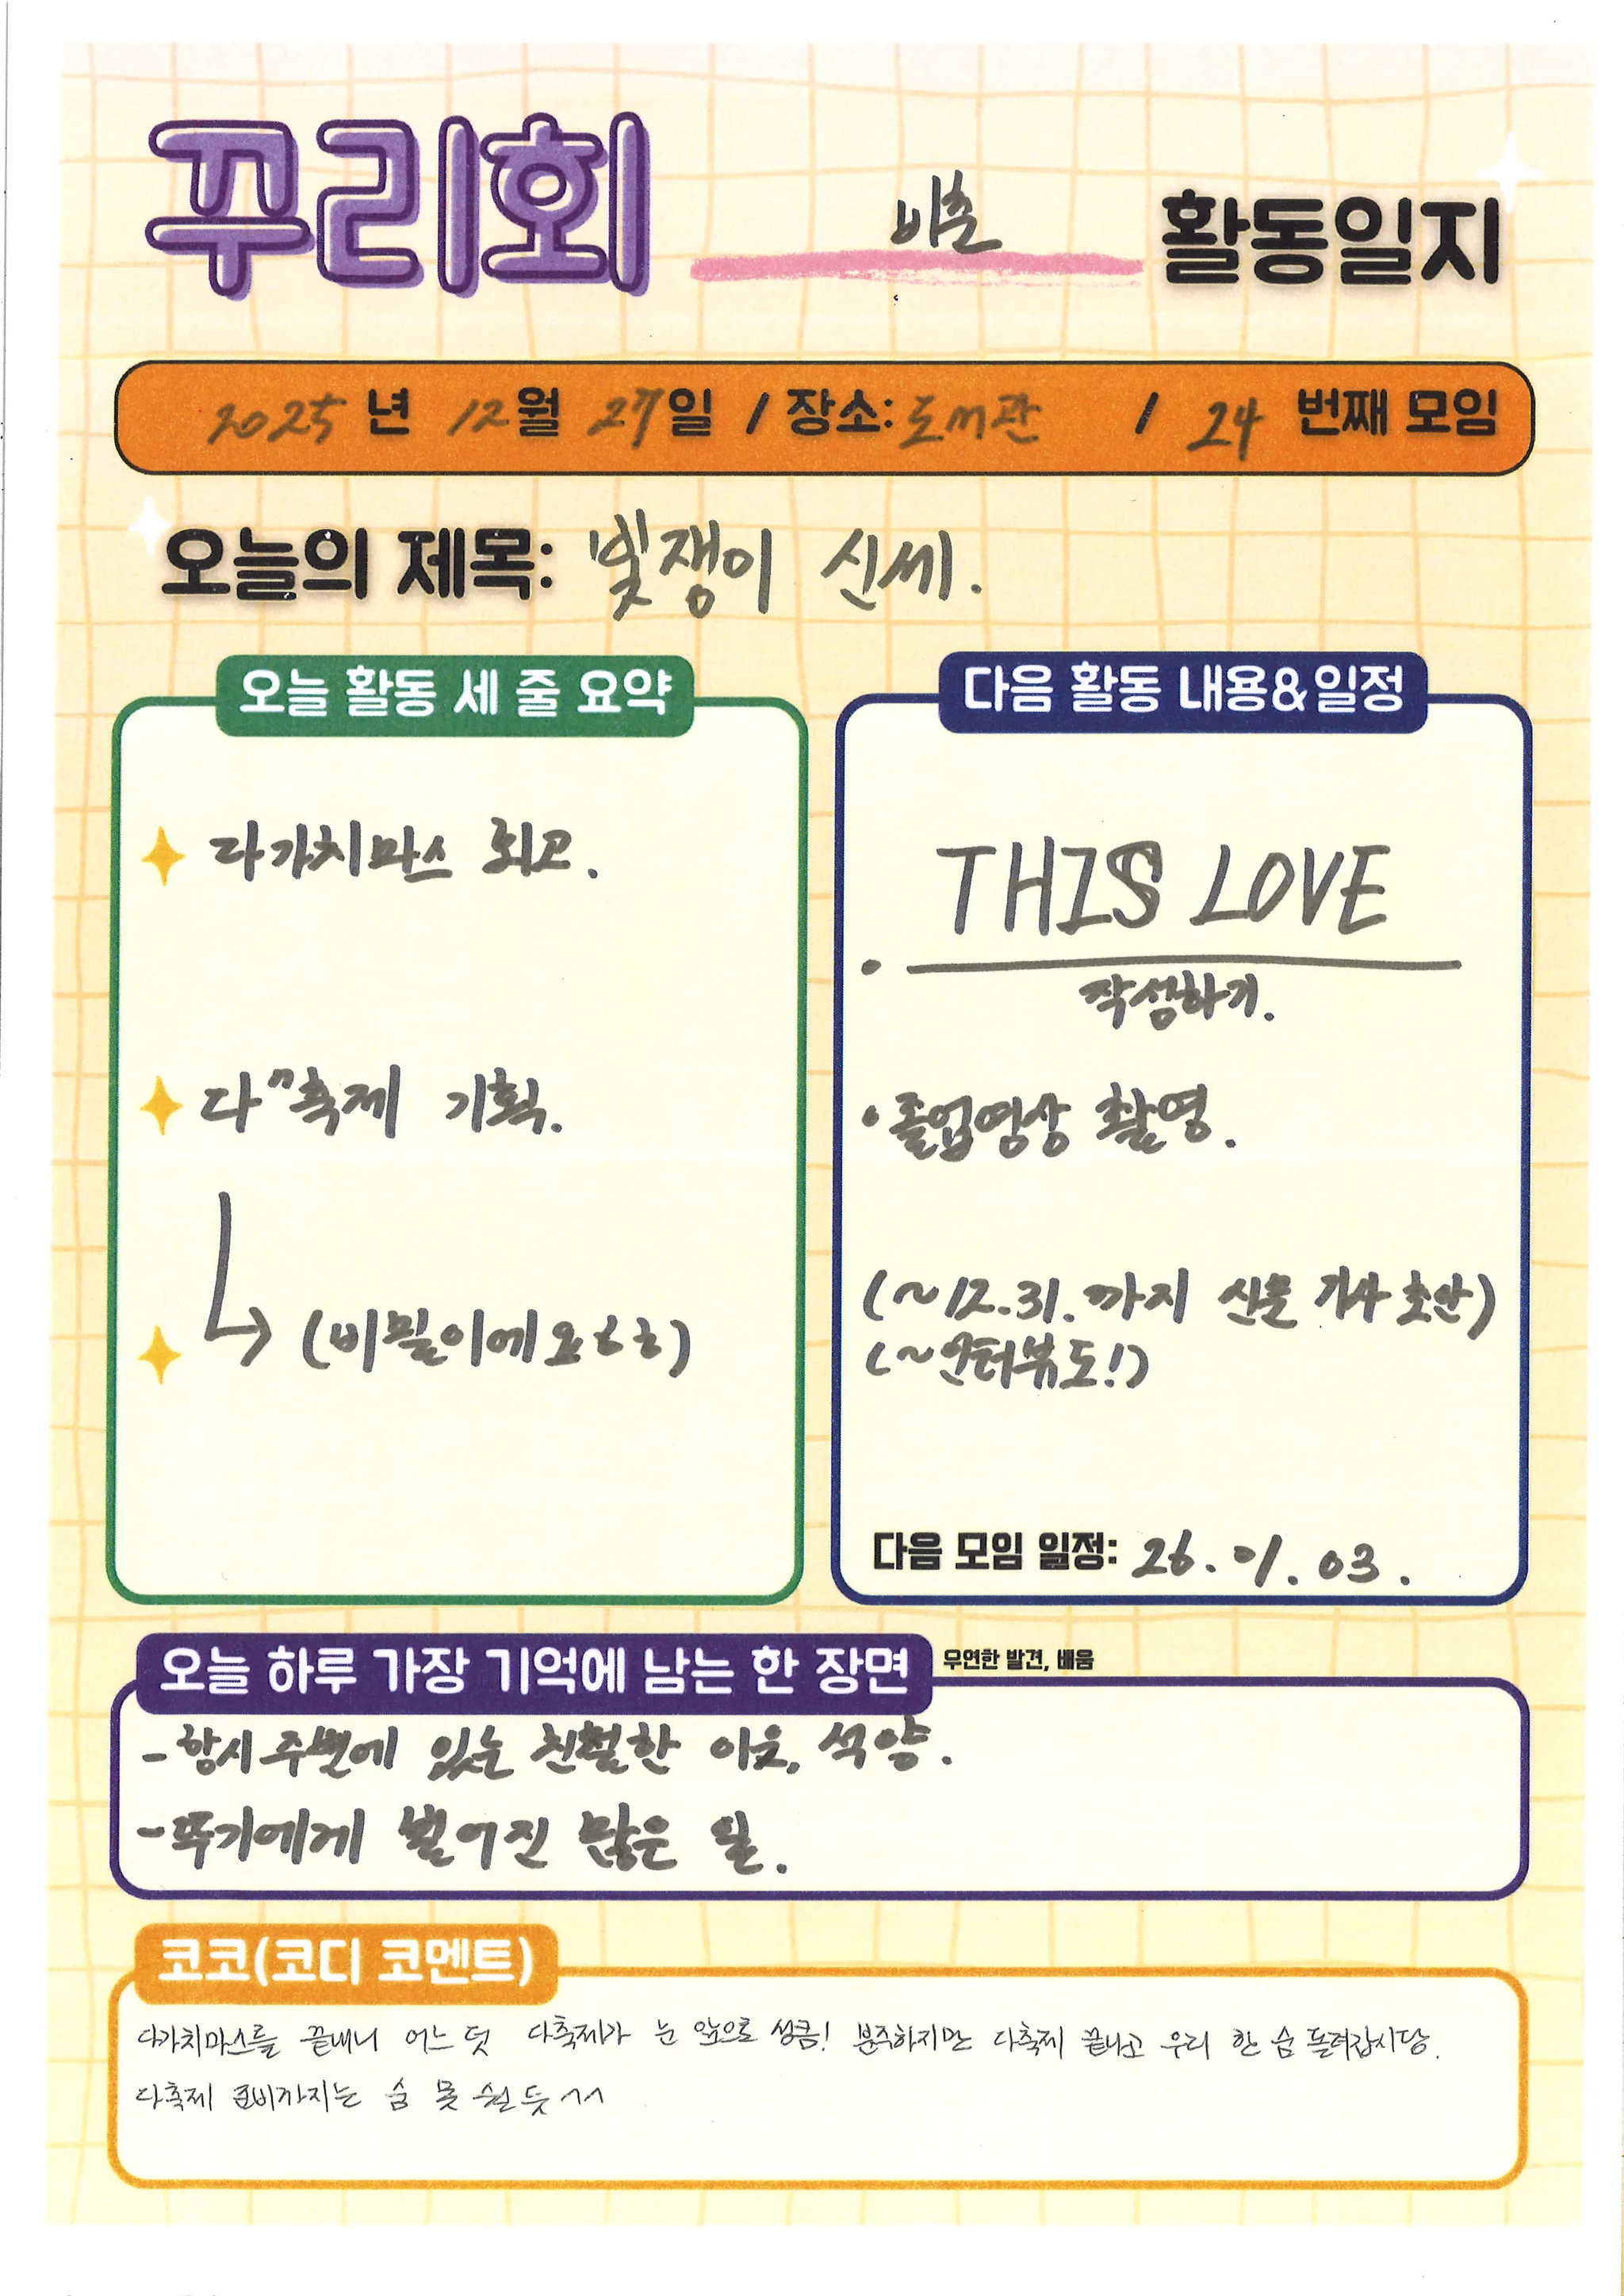 꾸리회 바춘 활동일지
2025 년 12월 27일 / 장소: 도서관 / 24 번째 모임
오늘의 제목: 빚쟁이 신세.
오늘 활동 세 줄 요약
다가치마스 회고.
다"축제 기획.
(비밀이에요ㅎㅎ)
다음 활동 내용&일정
THIS LOVE
작성하기.
• 졸업영상 촬영.
(~12.31.까지 신문 기사 초안)
(~인터뷰도!)
다음 모임 일정: 26. 01. 03.
오늘 하루 가장 기억에 남는 한 장면 우연한 발견, 배움
- 항시 주변에 있는 친절한 이웃, 석양.
- 뚜기에게 벌어진 많은 일.
코코(코디 코멘트)
다가치마스를 끝내니 어느덧 다축제가 눈 앞으로 성큼! 분주하지만 다축제 끝나고 우리 한 숨 돌려갑시당.
다축제 준비까지는 숨 못 쉴 듯^^